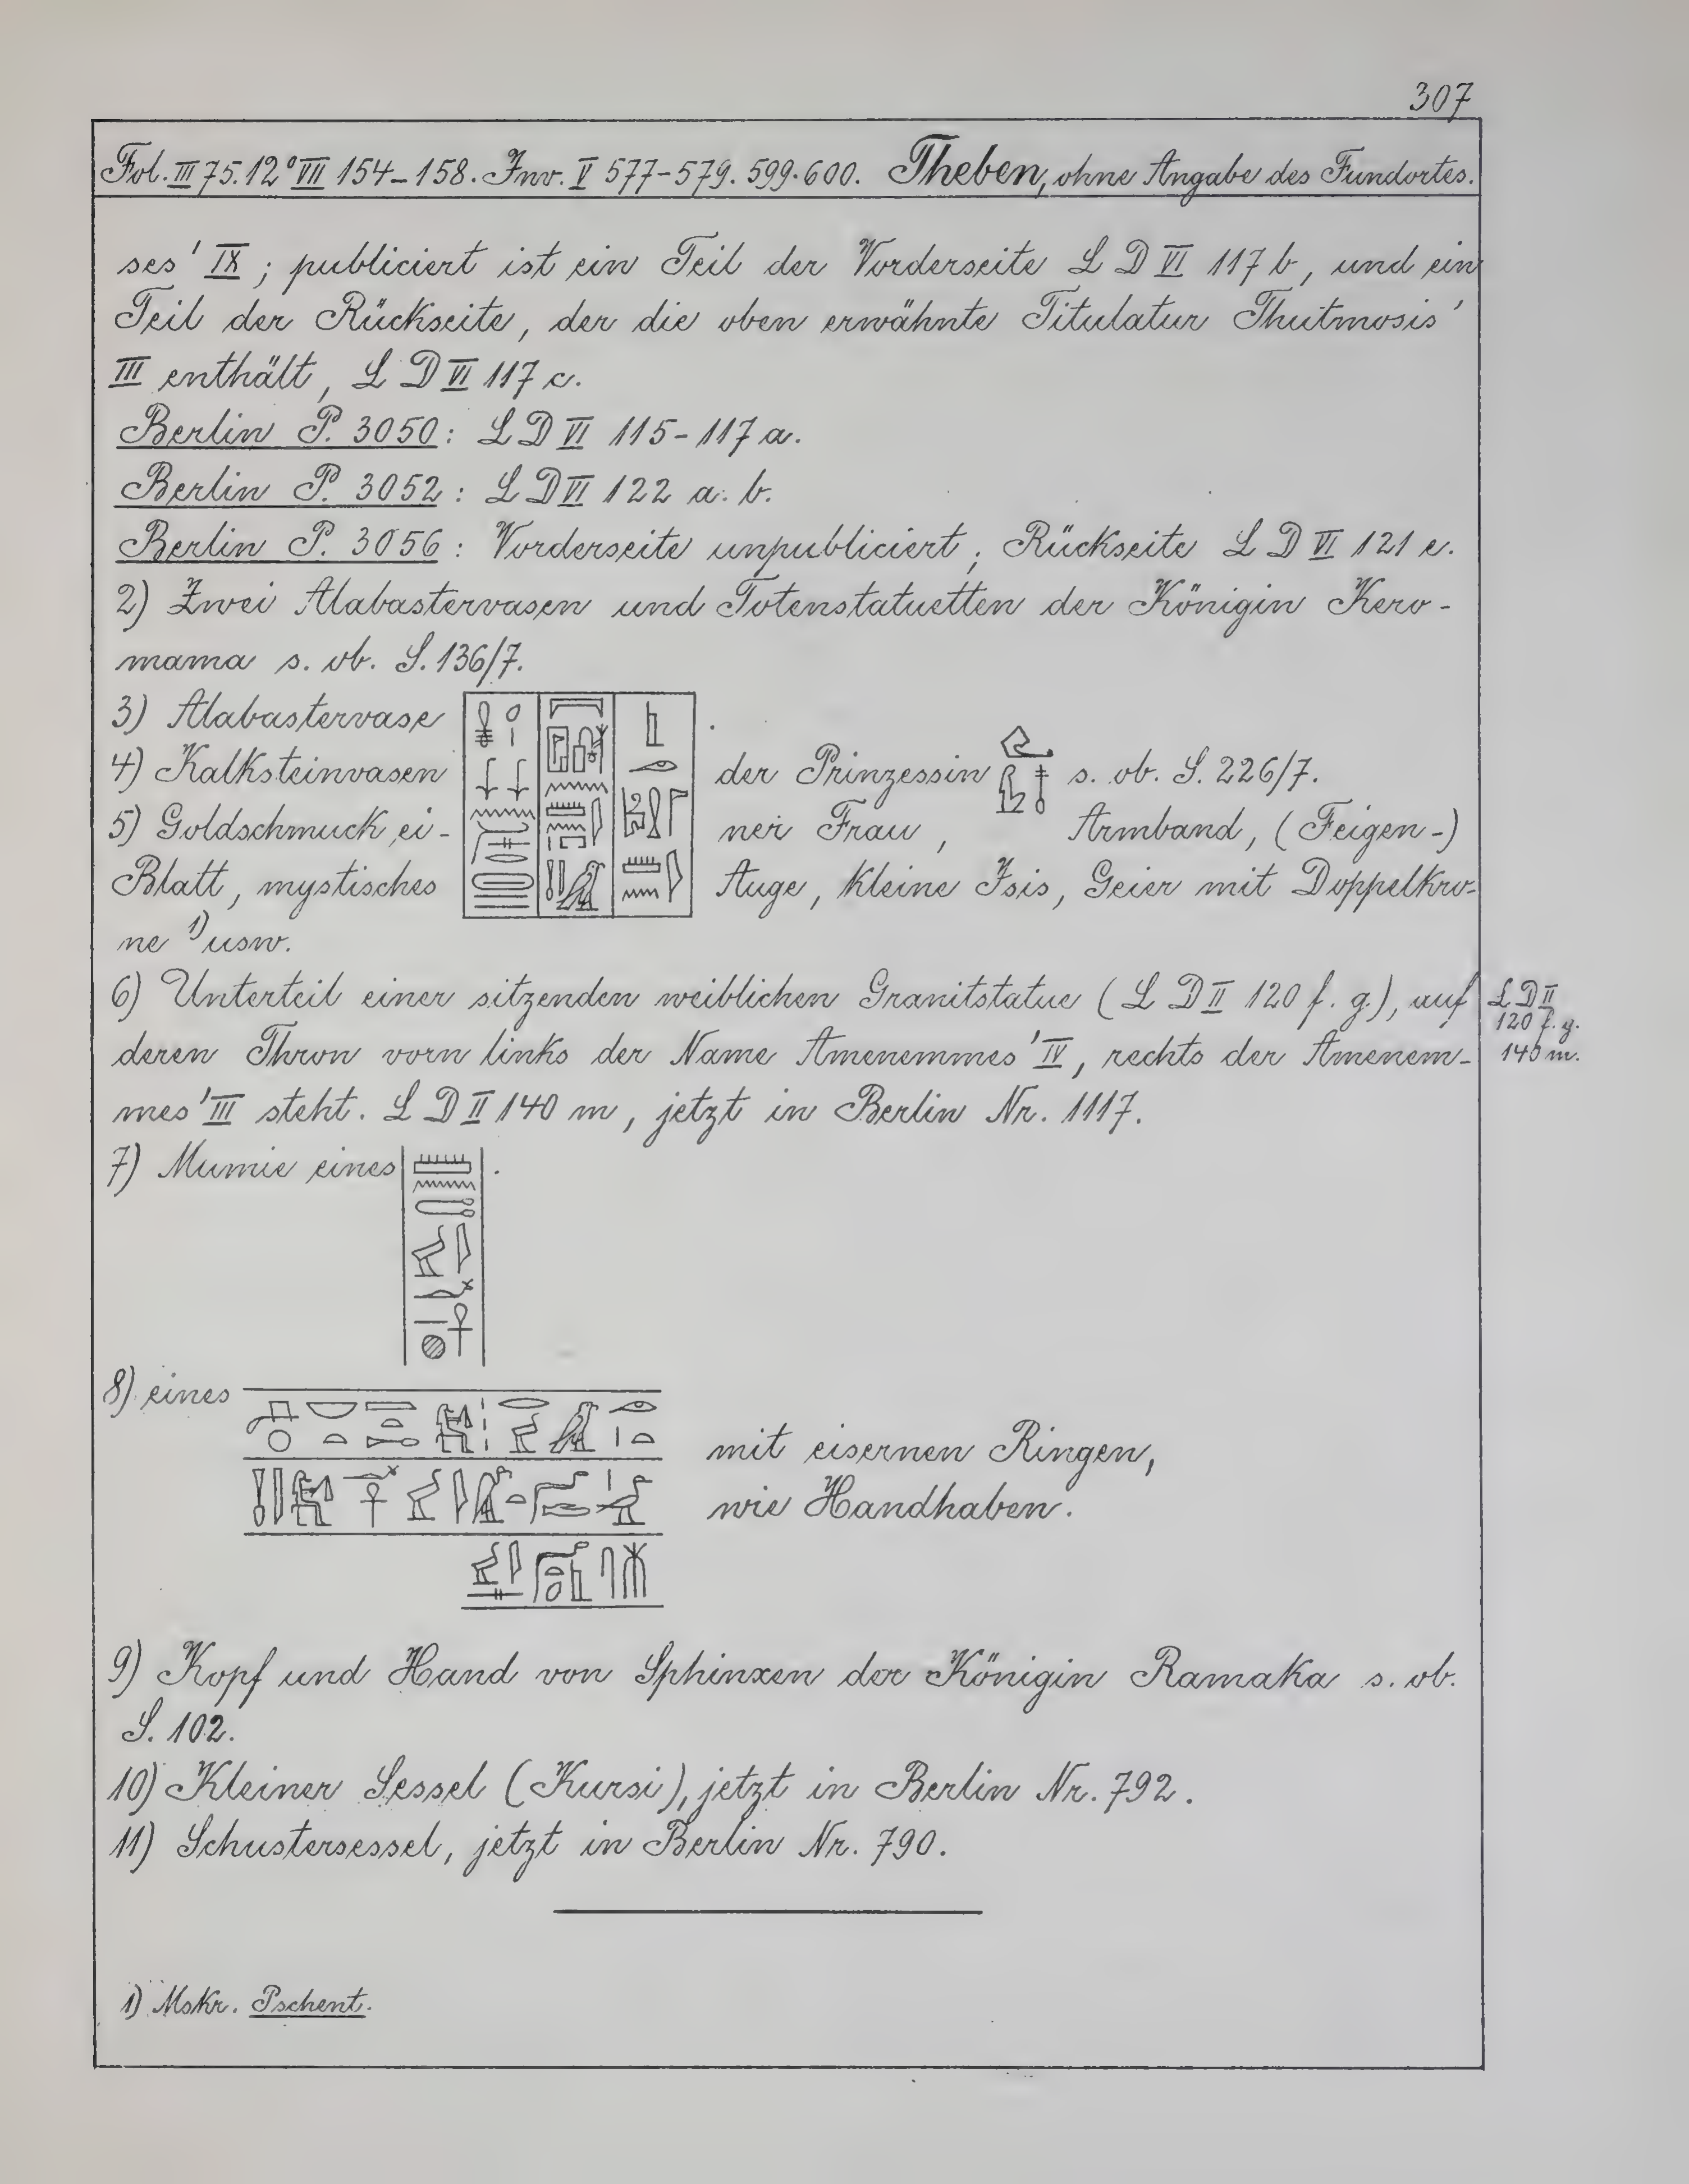 307
Fol. III 75. 12° VII 154-158. Inv. V 577-579. 599. 600. Theben, ohne Angabe des Fundortes.
ses' IX ; publiciert ist ein Teil der Vorderseite L D VI 117 b, und ein
Teil der Rückseite, der die oben erwähnte Titulatur Thutmosis'
III enthält, L D VI 117 c.
Berlin P. 3050: L D VI 115-117 a.
Berlin P. 3052: L D VI 122 a. b.
Berlin P. 3056: Vorderseite unpubliciert; Rückseite L D VI 121 c.
2) Zwei Alabastervasen und Totenstatuetten der Königin Kero-
mama s. ob. S. 136/7.
3) Alabastervase .
4) Kalksteinvasen der Prinzessin s. ob. S. 226/7.
5) Goldschmuck, ei- ner Frau, Armband, (Feigen-)
Blatt, mystisches Auge, kleine Isis, Geier mit Doppelkro-
ne 1) usw.
6) Unterteil einer sitzenden weiblichen Granitstatue (L D II 120 f. g.), auf
L D II
120 f. g.
140 m.
deren Thron vorn links der Name Amenemmes' IV, rechts der Amenem-
mes' III steht. L D II 140 m, jetzt in Berlin Nr. 1117.
7) Mumie eines .
8) eines mit eisernen Ringen,
wie Handhaben.
9) Kopf und Hand von Sphinxen der Königin Ramaka s. ob.
S. 102.
10) Kleiner Sessel (Kursi), jetzt in Berlin Nr. 792.
11) Schustersessel, jetzt in Berlin Nr. 790.
1) Mskr. Pschent.